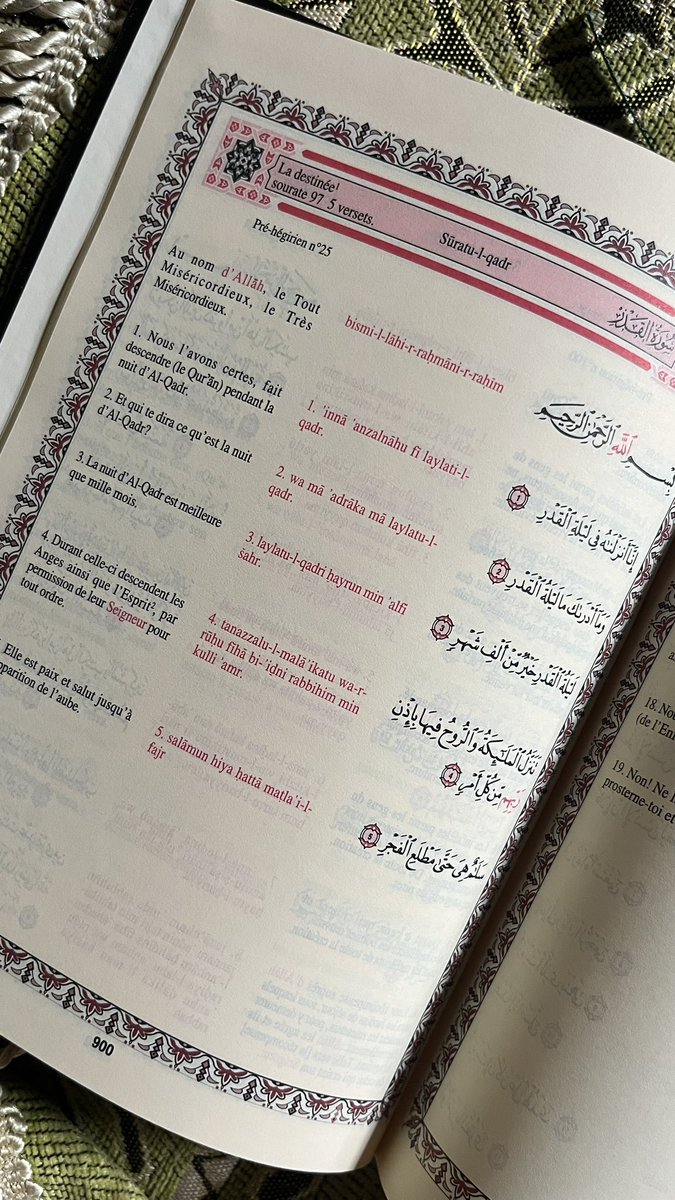 La destinée¹
sourate 97 5 versets.
Sūratu-l-qadr
سُورَةُ القَدْرِ
Pré-hégirien n°25
Au nom d'Allāh, le Tout
Miséricordieux, le Très
Miséricordieux.
1. Nous l'avons certes, fait
descendre (le Qur'ān) pendant la
nuit d'Al-Qadr.
2. Et qui te dira ce qu'est la nuit
d'Al-Qadr?
3. La nuit d'Al-Qadr est meilleure
que mille mois.
4. Durant celle-ci descendent les
Anges ainsi que l'Esprit², par
permission de leur Seigneur pour
tout ordre.
Elle est paix et salut jusqu'à
apparition de l'aube.
bismi-l-lāhi-r-rahmāni-r-rahim
1. 'innā 'anzalnāhu fī laylati-l-
qadr.
2. wa mā 'adrāka mā laylatu-l-
qadr.
3. laylatu-l-qadri ḥayrun min 'alfi
šahr.
4. tanazzalu-l-malā'ikatu wa-r-
rūḥu fīhā bi-'iḏni rabbihim min
kulli 'amr.
5. salāmun hiya ḥattā matla'i-l-
fajr
بِسْمِ ٱللَّهِ ٱلرَّحْمَٰنِ ٱلرَّحِيمِ
إِنَّآ أَنزَلْنَٰهُ فِى لَيْلَةِ ٱلْقَدْرِ ①
وَمَآ أَدْرَىٰكَ مَا لَيْلَةُ ٱلْقَدْرِ ②
لَيْلَةُ ٱلْقَدْرِ خَيْرٌ مِّنْ أَلْفِ شَهْرٍ ③
تَنَزَّلُ ٱلْمَلَٰٓئِكَةُ وَٱلرُّوحُ فِيهَا بِإِذْنِ
رَبِّهِم مِّن كُلِّ أَمْرٍ ④
سَلَٰمٌ هِىَ حَتَّىٰ مَطْلَعِ ٱلْفَجْرِ ⑤
900
18. Nou
(de l'En
19. Non! Ne
prosterne-toi et